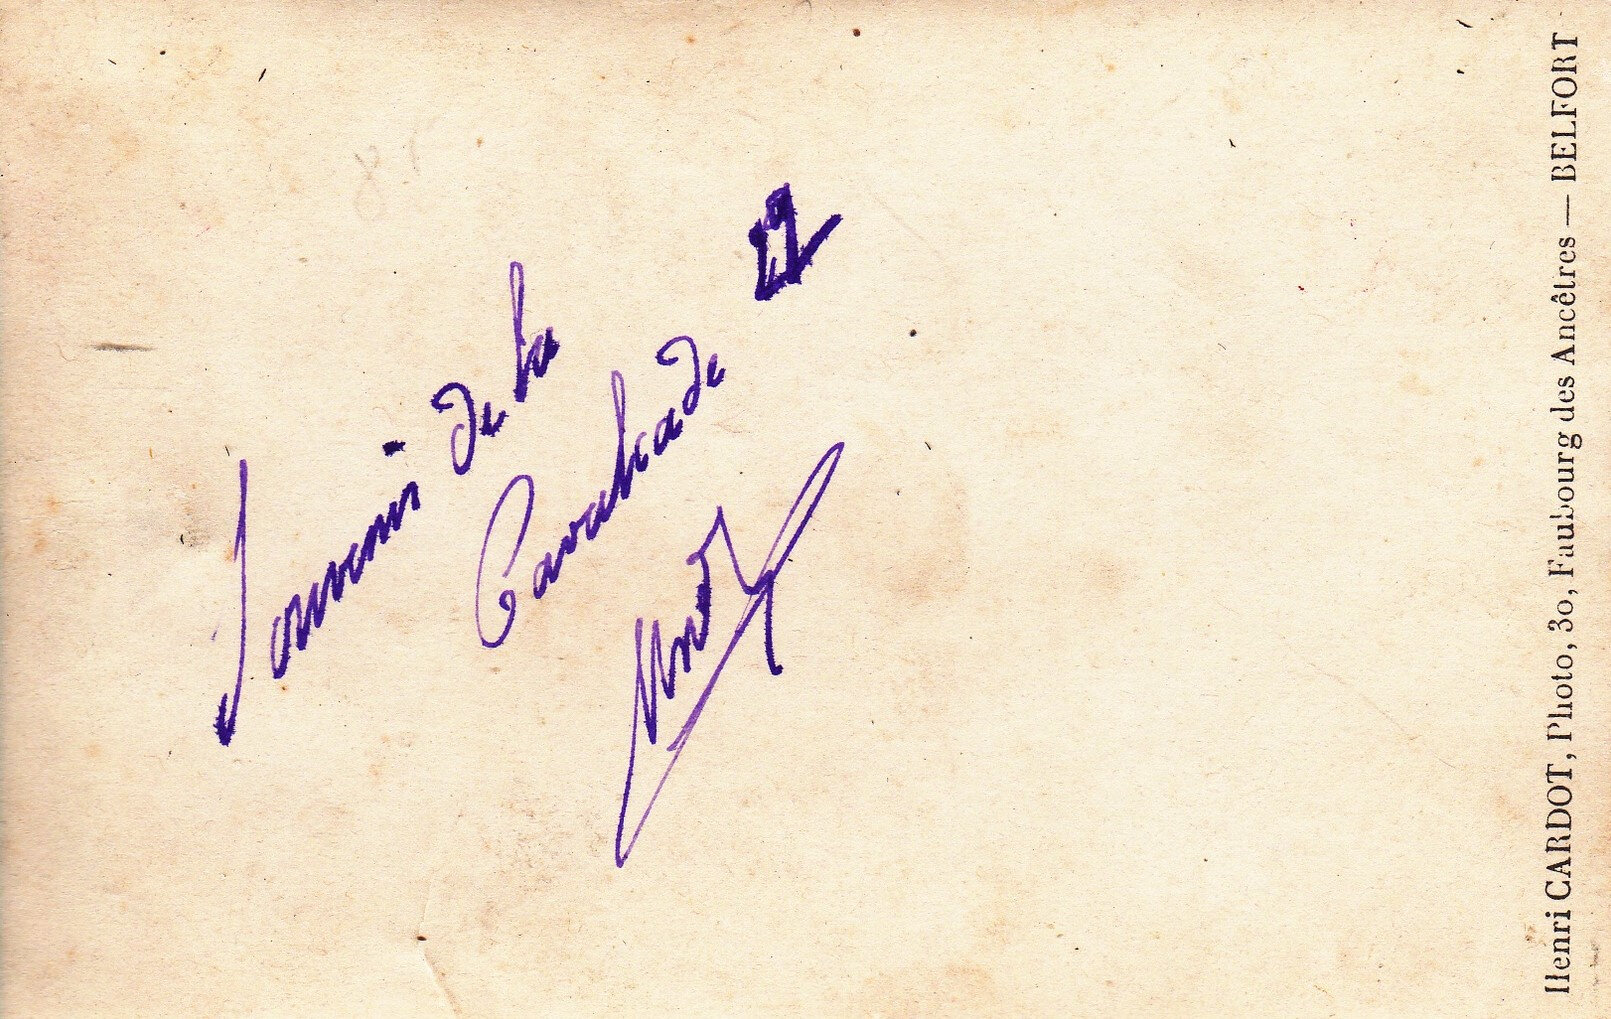 Souvenir de la
Cavalcade
Henri CARDOT, Photo, 30, Faubourg des Ancêtres — BELFORT